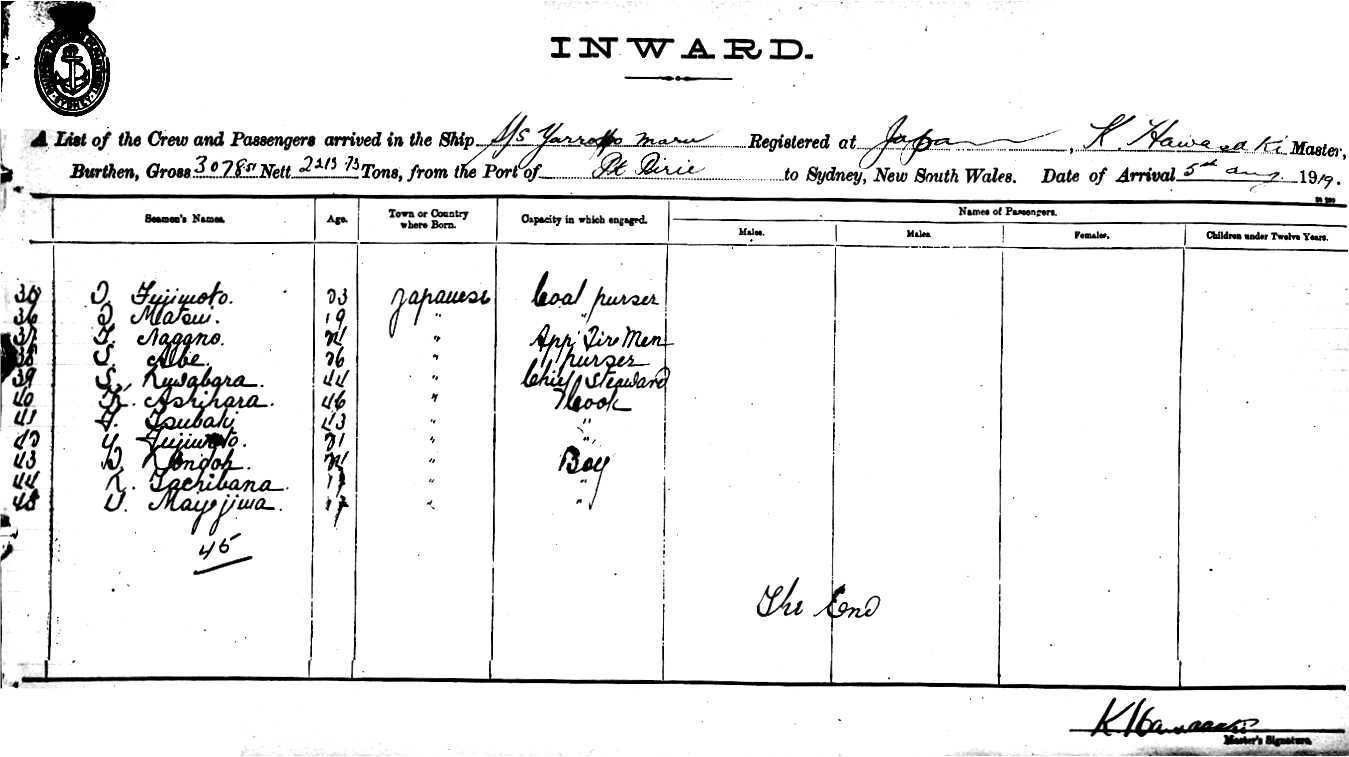 INWARD.
A List of the Crew and Passengers arrived in the Ship S/S Maru Registered at Japan, K. Hawasaki Master,
Burthen, Gross 3078 Nett Tons, from the Port of Pt Pirie to Sydney, New South Wales. Date of Arrival 5th Aug 1919.
Seamen's Names. Age. Town or Country where Born. Capacity in which engaged. Names of Passengers.
Males. Males. Females. Children under Twelve Years.
35 Fujimoto. 23 Japanese Coal purser
36 Matsui. 19 " "
37 Nagano. " App Fir Men
38 S. Abe. 26 " purser
39 S. Kuwabara. 44 " Chief Steward
40 K. Ashihara. 46 " Cook
41 Tsubaki 43 " "
42 Y. Fujimoto. 21 " "
43 Kondoh. " Boy
44 K. Tachibana. 17 " "
45 17 " "
45
The End
Master's Signature.